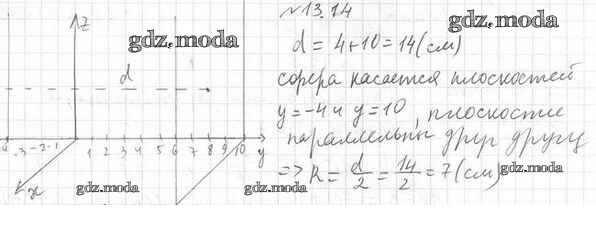 №13.14
gdz.moda
gdz.moda
z
d = 4+10 = 14 (см)
d
сфера касается плоскостей
y = -4 и y = 10, плоскости
параллельны друг другу
-4 -3 -2 -1 1 2 3 4 5 6 7 8 9 10 y
=> R = d/2 = 14/2 = 7 (см)
gdz.moda
x
gdz.moda
gdz.moda